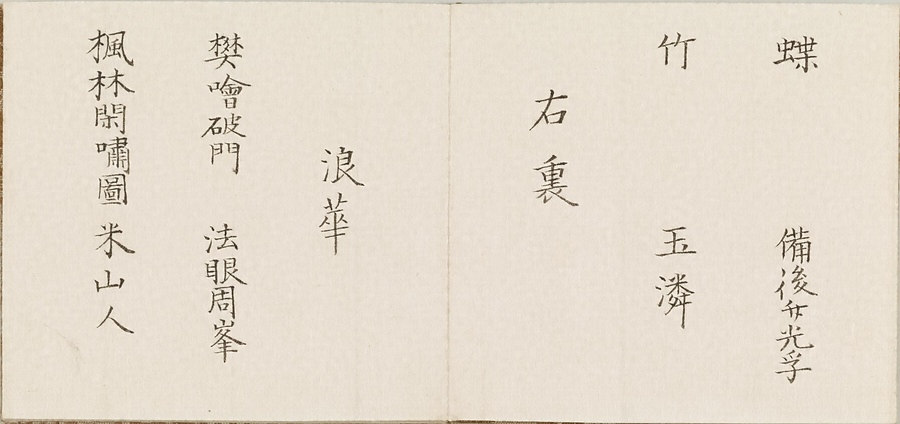 蝶 備後女光孚
竹 玉潾
右裏
浪華
樊噲破門 法眼周峯
楓林閑嘯圖 米山人